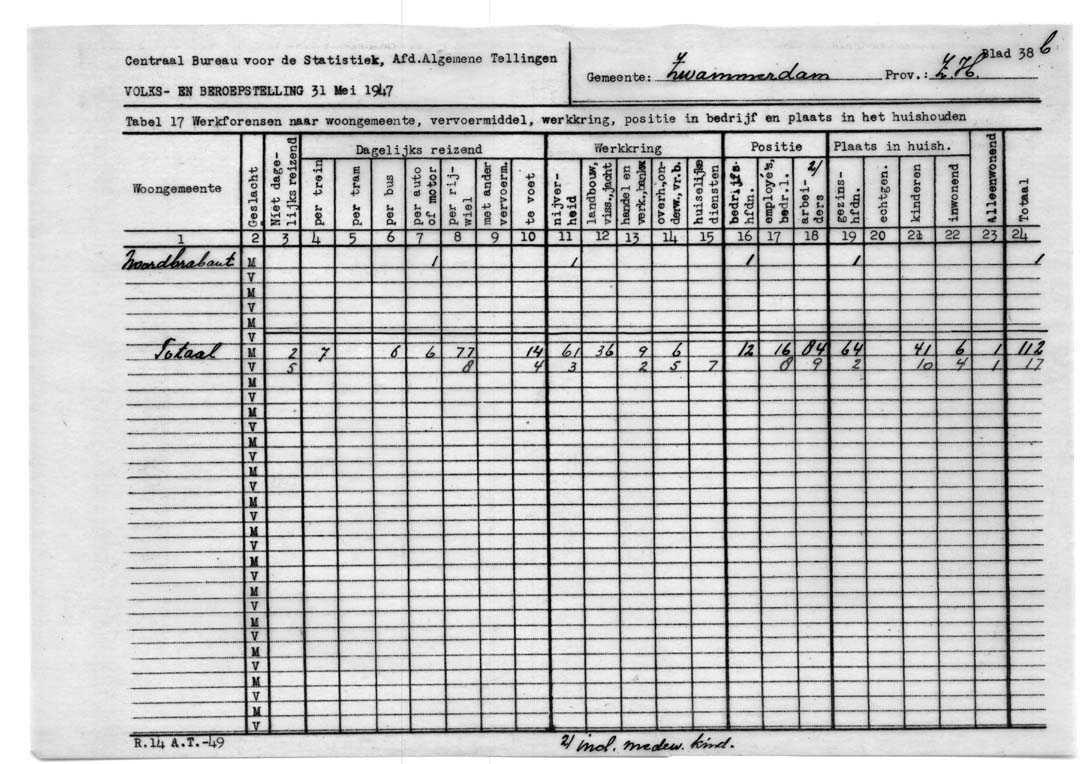 Centraal Bureau voor de Statistiek, Afd.Algemene Tellingen
VOLKS- EN BEROEPSTELLING 31 Mei 1947
Blad 38 b
Gemeente: Zwammerdam Prov.: Z.H.
Tabel 17 Werkforensen naar woongemeente, vervoermiddel, werkkring, positie in bedrijf en plaats in het huishouden
Woongemeente Geslacht Niet dage-lijks reizend Dagelijks reizend Werkkring Positie Plaats in huish. Alleenwonend Totaal
per trein per tram per bus per auto of motor per rij-wiel met ander vervoerm. te voet nijver-heid landbouw, viss.,jacht handel en verk.,bankw overh.,on-derw,vr.b. huiselijke diensten bedrijfs-hfdn. employé's, bedr.l. arbei-ders 2/ gezins-hfdn. echtgen. kinderen inwonend
1 2 3 4 5 6 7 8 9 10 11 12 13 14 15 16 17 18 19 20 21 22 23 24
Noordbrabant M 1 1 1 1 1
V
M
V
M
V
Totaal M 2 7 6 6 77 14 61 36 9 6 12 16 84 64 41 6 1 112
V 5 8 4 3 2 5 7 8 9 2 10 4 1 17
M
V
M
V
M
V
M
V
M
V
M
V
M
V
M
V
M
V
M
V
M
V
M
V
R.14 A.T.-49
2/ incl. medew. kind.